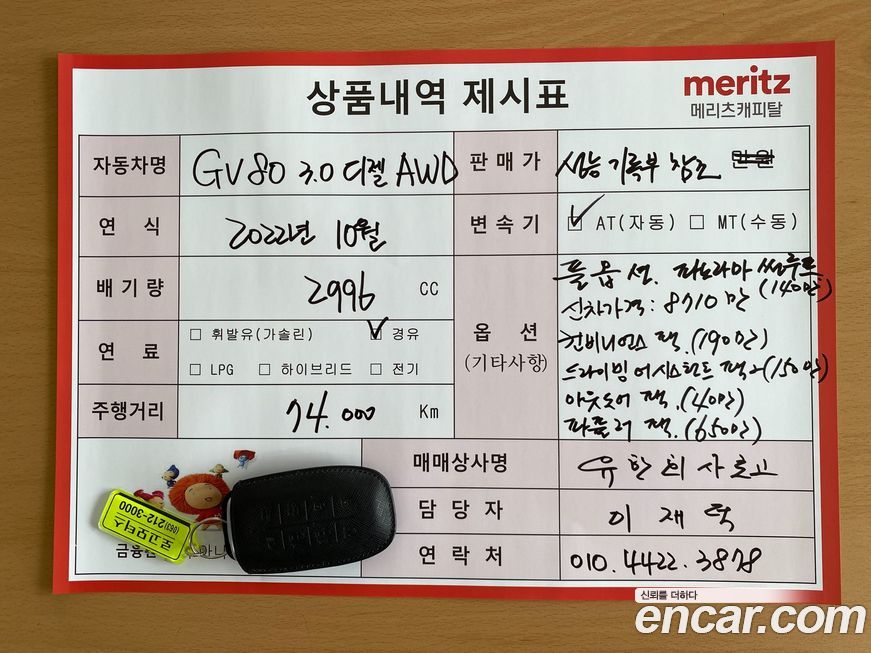 상품내역 제시표
meritz
메리츠캐피탈
자동차명 GV80 3.0 디젤 AWD
판매가 성능기록부 참조 만원
연 식 2022년 10월
변속기 ☑ AT(자동) □ MT(수동)
배기량 2996 CC
연 료 □ 휘발유(가솔린) ☑ 경유
□ LPG □ 하이브리드 □ 전기
주행거리 74.000 Km
옵 션
(기타사항)
풀옵션. 파노라마 썬루프
(140만)
신차가격: 8710만
컨비니언스 팩.(190만)
드라이빙 어시스턴트 팩2(150만)
아웃도어 팩.(40만)
파퓰러 팩.(650만)
매매상사명
담당자 이재덕
연락처 010.4422.3878
로고모터스
(063)212-3000
신뢰를 더하다
encar.com